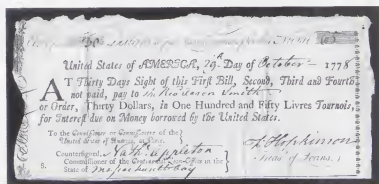 United States of AMERICA, 29th Day of October - 1778
AT Thirty Days Sight of this First Bill, Second, Third and Fourth
not paid, pay to
or Order, Thirty Dollars, in One Hundred and Fifty Livres Tournois,
for Interest due on Money borrowed by the United States.
To the Commissioner or Commissioners of the
United States of America, at Paris.
Countersigned, Nath. Appleton
Commissioner of the Continental Loan-Office in the
State of Massachusetts bay
S.
F Hopkinson
Treasr of Loans.